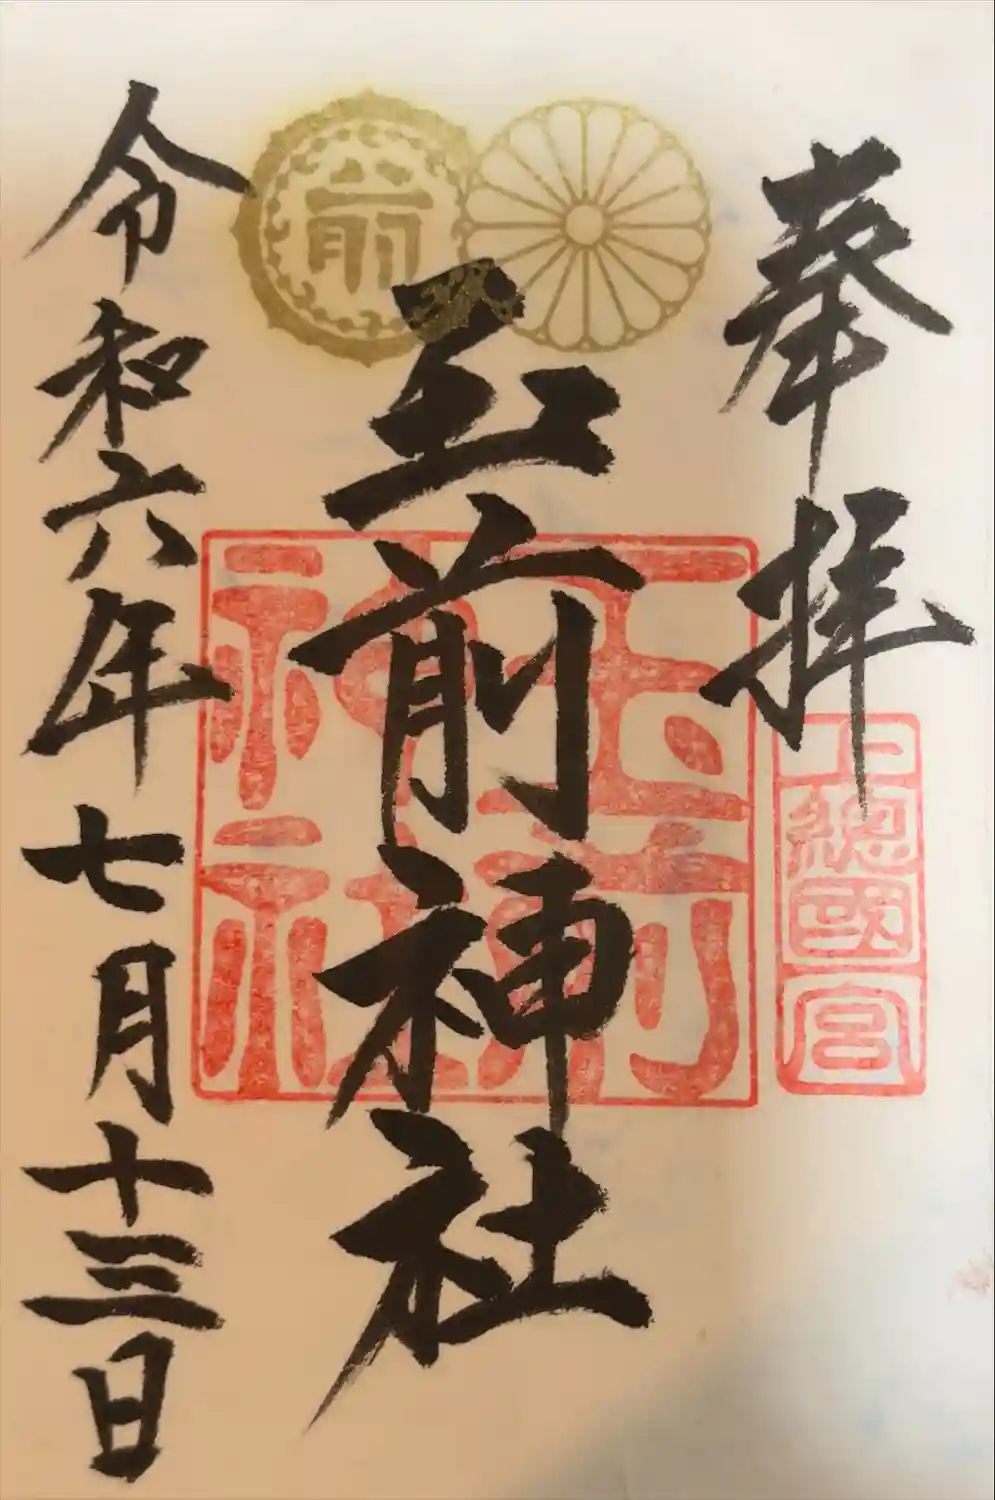 奉拝
上總國一宮
玉前神社
玉前神社
前
令和六年七月十三日